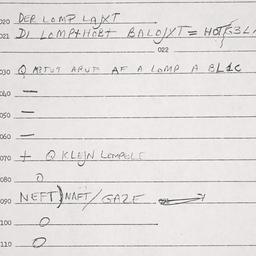 020 DER LOMP LAJXT
021 DI LOMP+HOBT BALOJXT =
022
030 Q APTUT ARUF AF A LOMP A BLIC
040 —
050 —
060 —
070 + Q KLEJN LOMPELE
080 O
090 NEFT) NAFT / GAZE
100 O
110 O